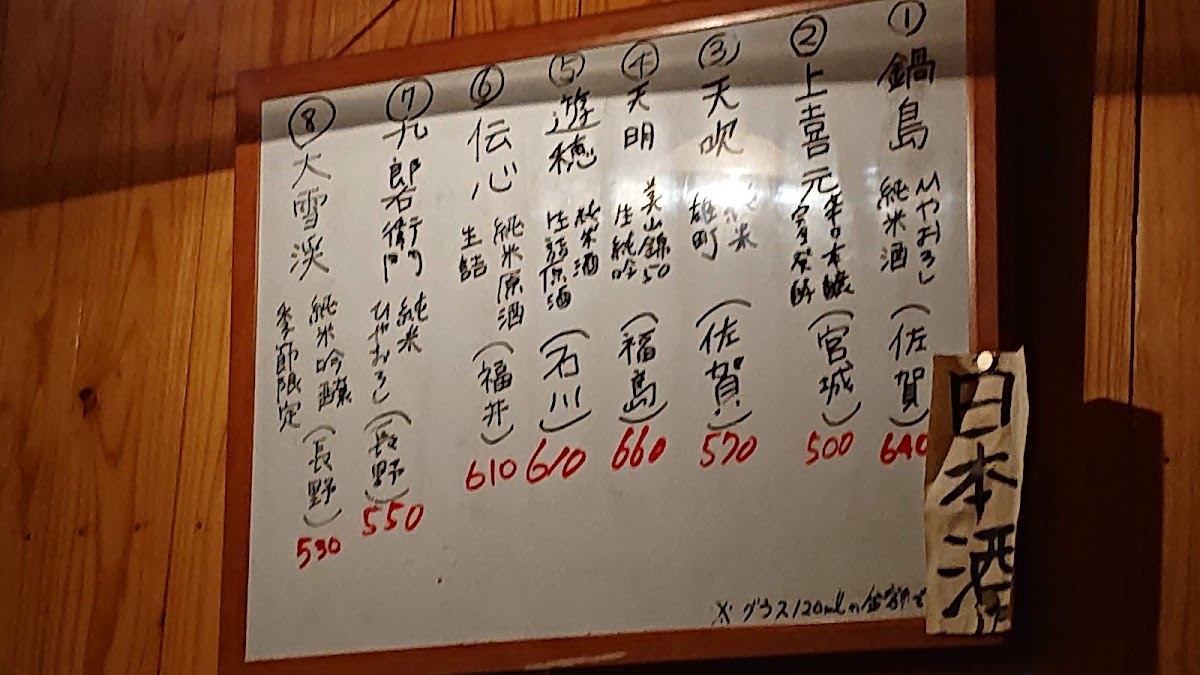 ① 鍋島
ひやおろし
純米酒
(佐賀)
640
② 上喜元
辛口本醸
(宮城)
500
③ 天吹
純米
雄町
(佐賀)
570
④ 天明
美山錦50
生純吟
(福島)
660
⑤ 遊穂
純米酒
生詰原酒
(石川)
610
⑥ 伝心
純米原酒
生詰
(福井)
610
⑦ 九郎右衛門
純米
ひやおろし
(長野)
550
⑧ 大雪渓
純米吟醸
季節限定
(長野)
530
※グラス120mlの金額で
日本酒